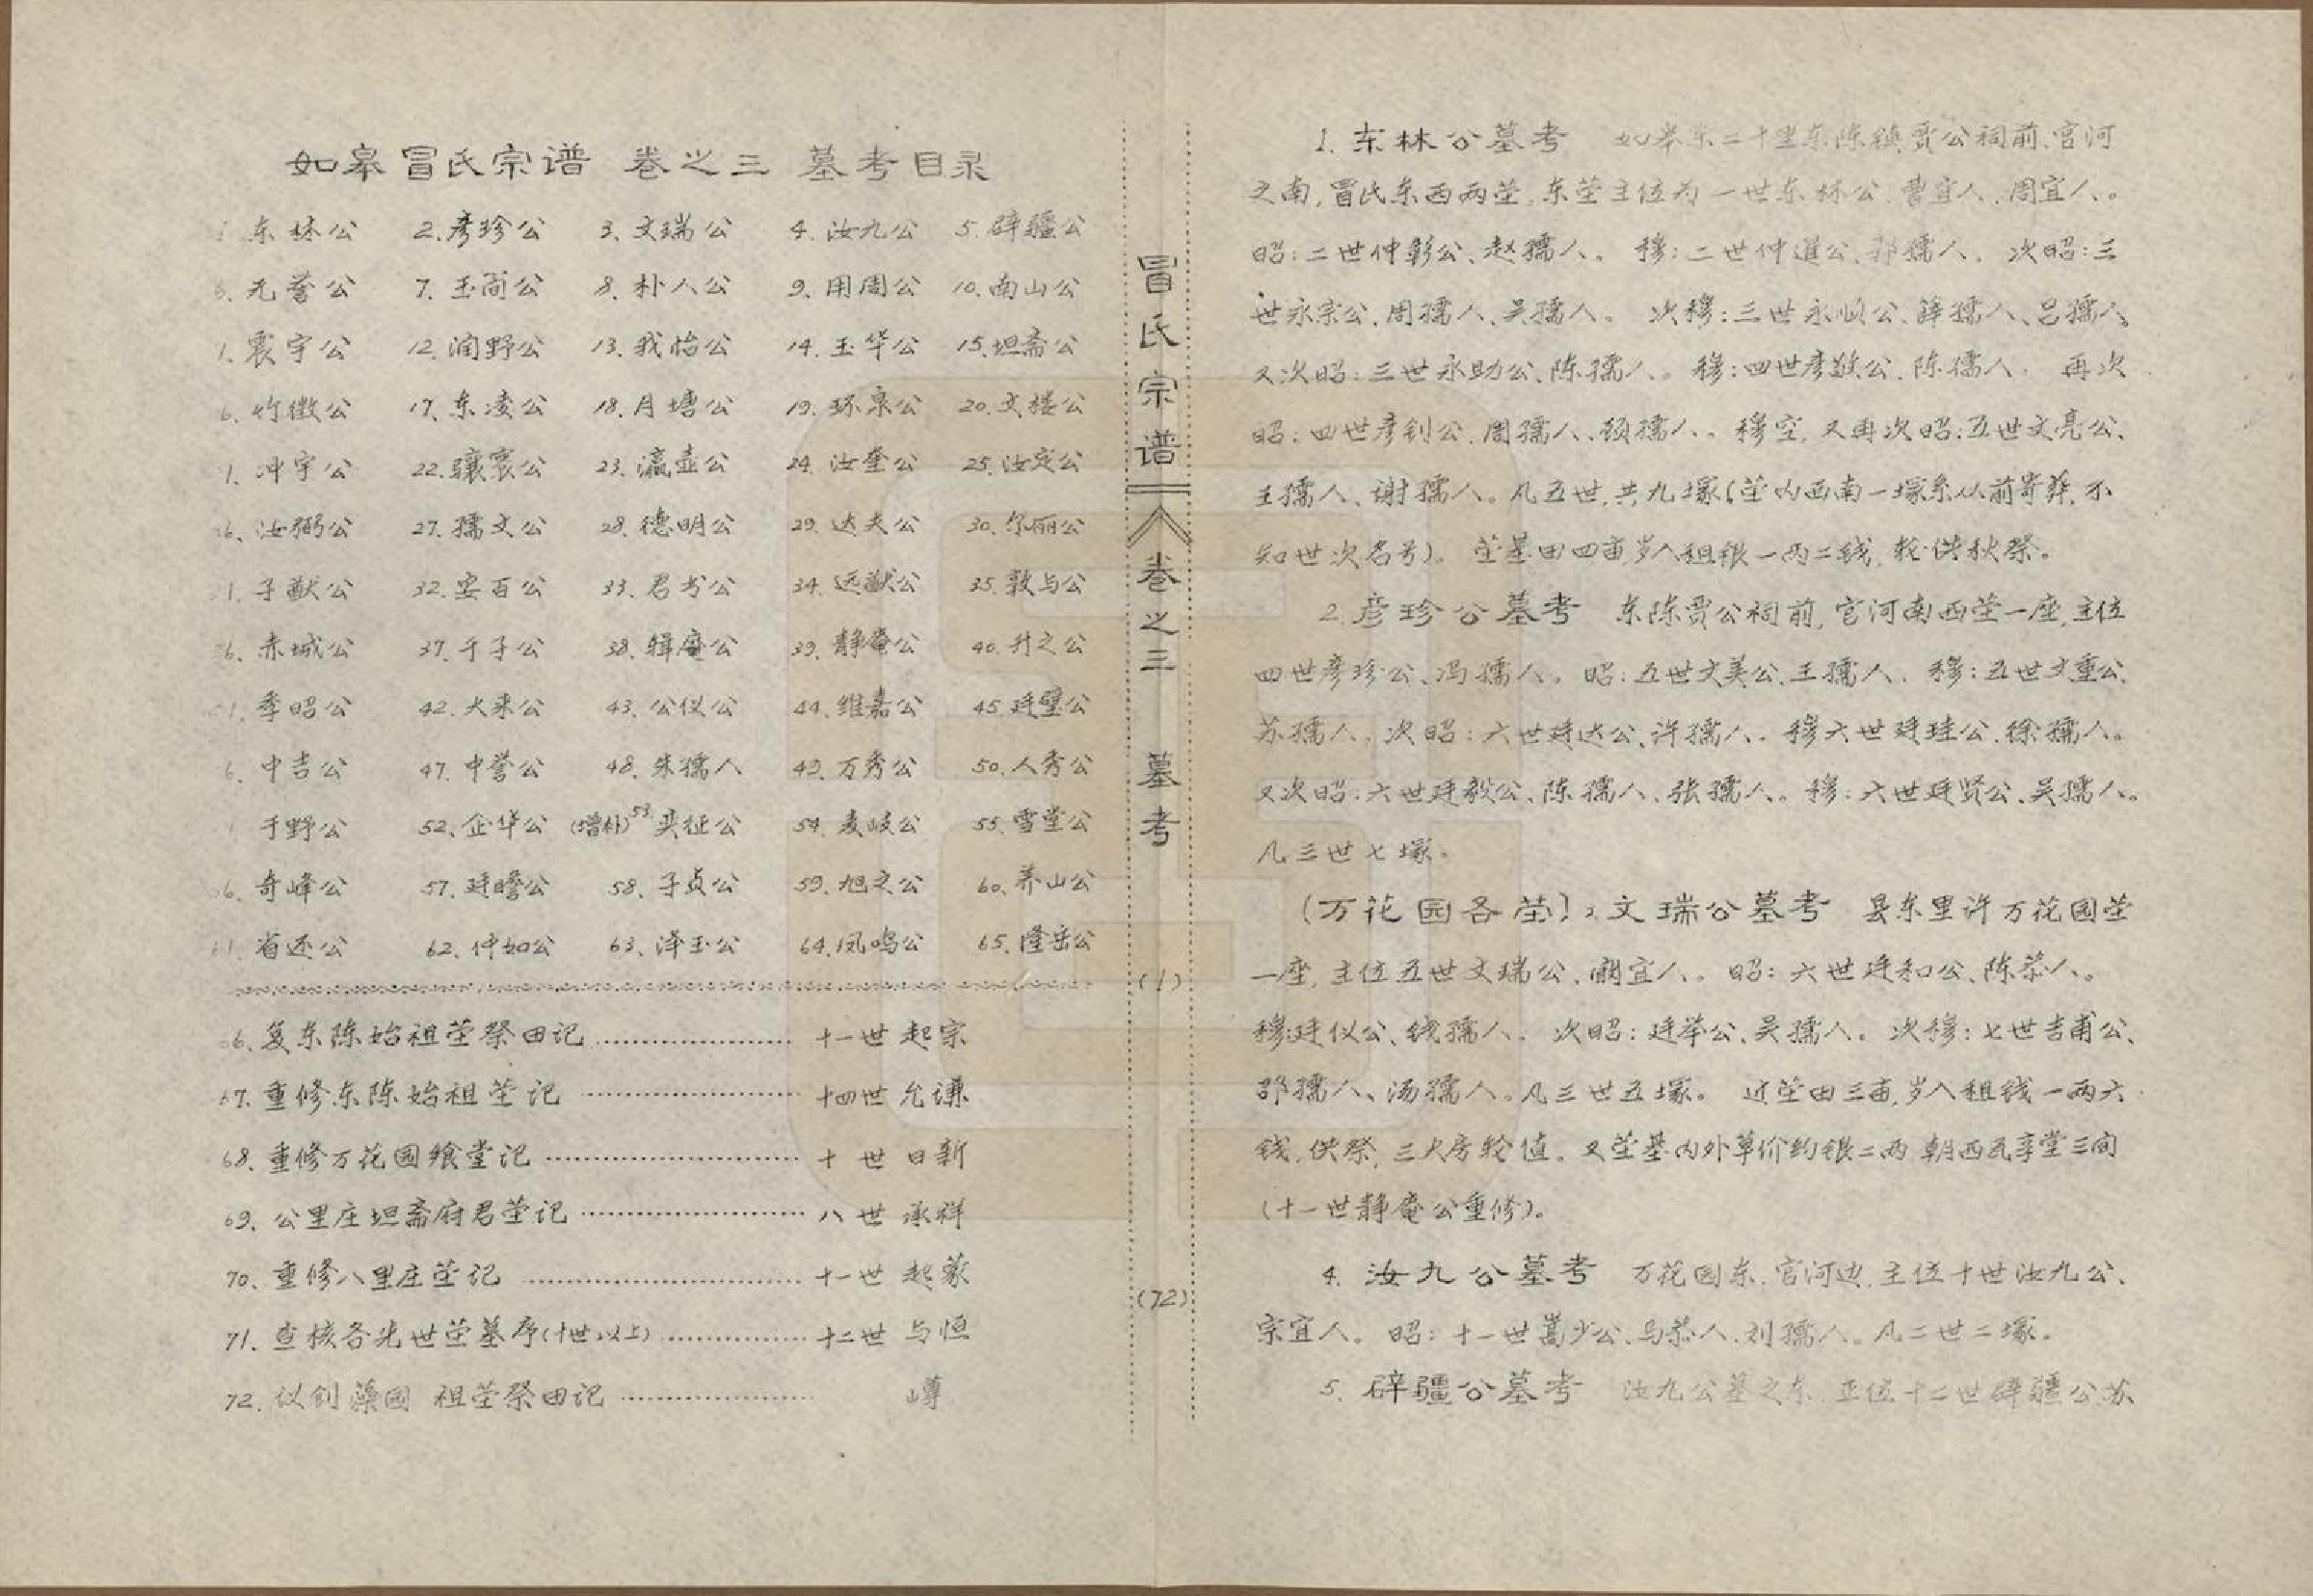 如皋冒氏宗谱 卷之三 墓考目录
东林公 2.彥珍公 3.文瑞公 4.汝九公 5.辟疆公
6.无誉公 7.玉简公 8.朴人公 9.用周公 10.南山公
1.寰宇公 12.润野公 13.我怡公 14.玉华公 15.坦斋公
6.竹徵公 17.东凌公 18.月塘公 19.环泉公 20.文楼公
1.冲宇公 22.骧寰公 23.瀛壶公 24.汝奎公 25.汝定公
6.汝弼公 27.孺文公 28.德明公 29.达夫公 30.尔丽公
1.子猷公 32.安百公 33.君书公 34.远猷公 35.敦与公
6.赤城公 37.千子公 38.辑庵公 39.静庵公 40.升之公
1.季昭公 42.大来公 43.公仪公 44.维嘉公 45.廷璧公
6.中吉公 47.中誉公 48.朱孺人 49.万秀公 50.人秀公
于野公 52.企华公 (增补)53.奕征公 54.麦岐公 55.雪堂公
6.奇峰公 57.廷瞻公 58.子贞公 59.旭之公 60.养山公
61.省还公 62.仲如公 63.泽玉公 64.凤鸣公 65.隆岳公
6.复东陈始祖茔祭田记…………………十一世 起宗
67.重修东陈始祖茔记…………………十四世 允谦
68.重修万花园飨堂记…………………十 世 日新
69.公里庄坦斋府君茔记…………………八 世 承祥
70.重修八里庄茔记…………………十一世 起蒙
71.查核各先世茔墓序(十世以上)……………十二世 与恒
72.仪创藻园 祖茔祭田记………………… 嶟
冒氏宗谱 卷之三 墓考 (1) (72)
1.东林公墓考 如皋东二十里东陈镇贾公祠前,官河
之南,冒氏东西两茔,东茔主位为一世东林公,曹宜人,周宜人。
昭:二世仲彰公、赵孺人。穆:二世仲道公、郝孺人。次昭:三
世永宗公、周孺人、吴孺人。次穆:三世永顺公、薛孺人、吕孺人
又次昭:三世永助公、陈孺人。穆:四世彥敬公、陈孺人。再次
昭:四世彥钊公、周孺人、顾孺人。穆空,又再次昭:五世文亮公、
王孺人、谢孺人。凡五世,共九塚(茔内西南一塚系从前寄葬,不
知世次名号)。茔基田四亩,岁入租银一两二钱,轮供秋祭。
2.彥珍公墓考 东陈贾公祠前,官河南西茔一座,主位
四世彥珍公、冯孺人。昭:五世文美公、王孺人。穆:五世文重公、
苏孺人,次昭:六世廷达公、许孺人。穆六世廷珪公、徐孺人。
又次昭:六世廷毅公、陈孺人、张孺人。穆:六世廷贤公、吴孺人。
凡三世七塚。
(万花园各茔)3文瑞公墓考 县东里许万花园茔
一座,主位五世文瑞公、阚宜人。昭:六世廷和公、陈恭人。
穆廷仪公、钱孺人。次昭:廷举公、吴孺人。次穆:七世吉甫公、
邵孺人、汤孺人。凡三世五塚。近茔田三亩,岁入租钱一两六
钱,供祭,三大房轮值。又茔基内外草价约银二两,朝西瓦享堂三间
(十一世静庵公重修)。
4.汝九公墓考 万花园东,官河边,主位十世汝九公、
宗宜人。昭:十一世嵩少公、马恭人、刘孺人。凡二世二塚。
5.辟疆公墓考 汝九公墓之东,正位十二世辟疆公苏